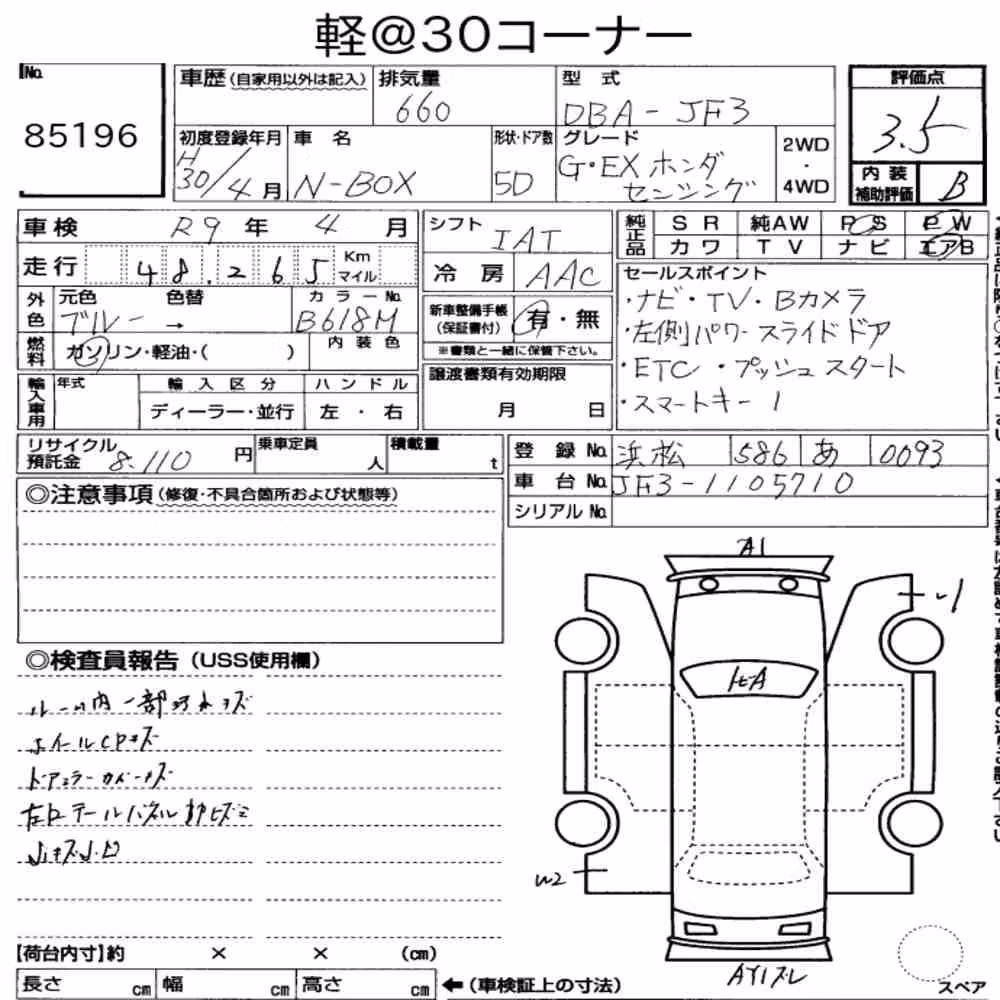 軽@30コーナー
No.
85196
車歴(自家用以外は記入)
排気量
660
型 式
DBA-JF3
評価点
3.5
内装補助評価
B
初度登録年月
H30/4月
車 名
N-BOX
形状・ドア数
5D
グレード
G・EX ホンダ
センシング
2WD
・
4WD
車検 R9 年 4 月
走行 48.265 Km マイル
外色
元色 色替
ブルー →
カラーNo.
B618M
燃料
ガソリン・軽油・( )
内装色
輸入車用
年式
輸入区分
ディーラー・並行
ハンドル
左・右
シフト
IAT
冷房
AAC
新車整備手帳
(保証書付)
有・無
※書類と一緒に保管下さい。
譲渡書類有効期限
月 日
純正品
SR 純AW PS PW
カワ TV ナビ エアB
セールスポイント
・ナビ・TV・Bカメラ
・左側パワースライドドア
・ETC ・プッシュスタート
・スマートキー1
リサイクル預託金
8.110 円
乗車定員
人
積載量
t
登録No. 浜松 586 あ 0093
車台No. JF3-1105710
シリアルNo.
◎注意事項(修復・不具合箇所および状態等)
◎検査員報告(USS使用欄)
ホイールCPキズ
A1
U1
W2
スペア
【荷台内寸】約 × × (cm)
長さ cm 幅 cm 高さ cm
←(車検証上の寸法)